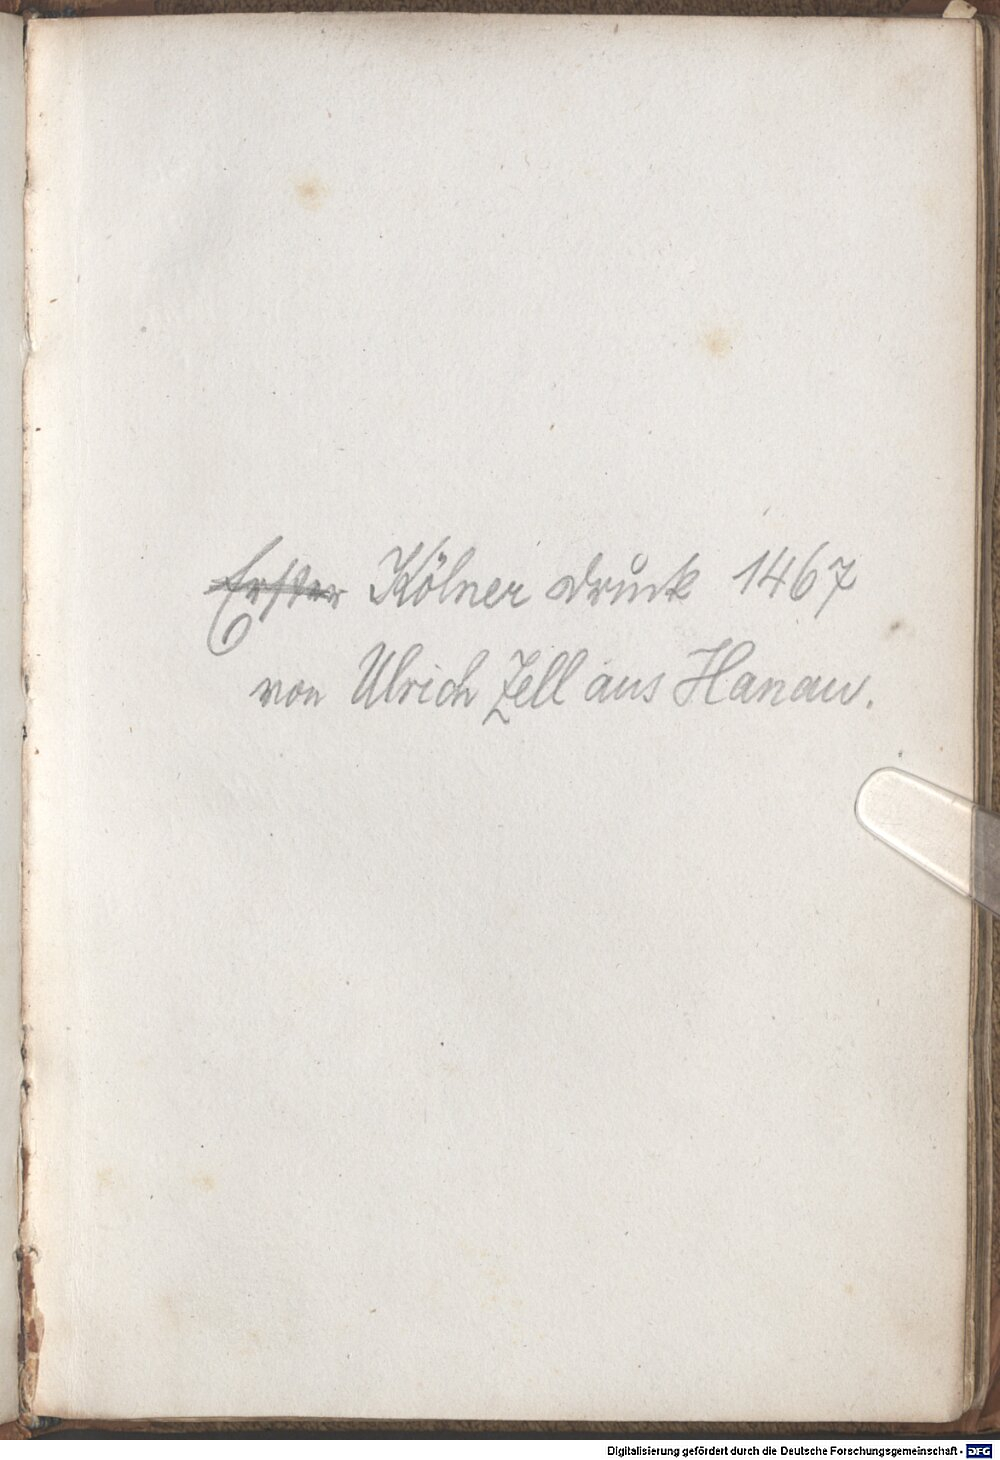 Erster Kölner Druck 1467
von Ulrich Zell aus Hanau.
Digitalisierung gefördert durch die Deutsche Forschungsgemeinschaft - DFG